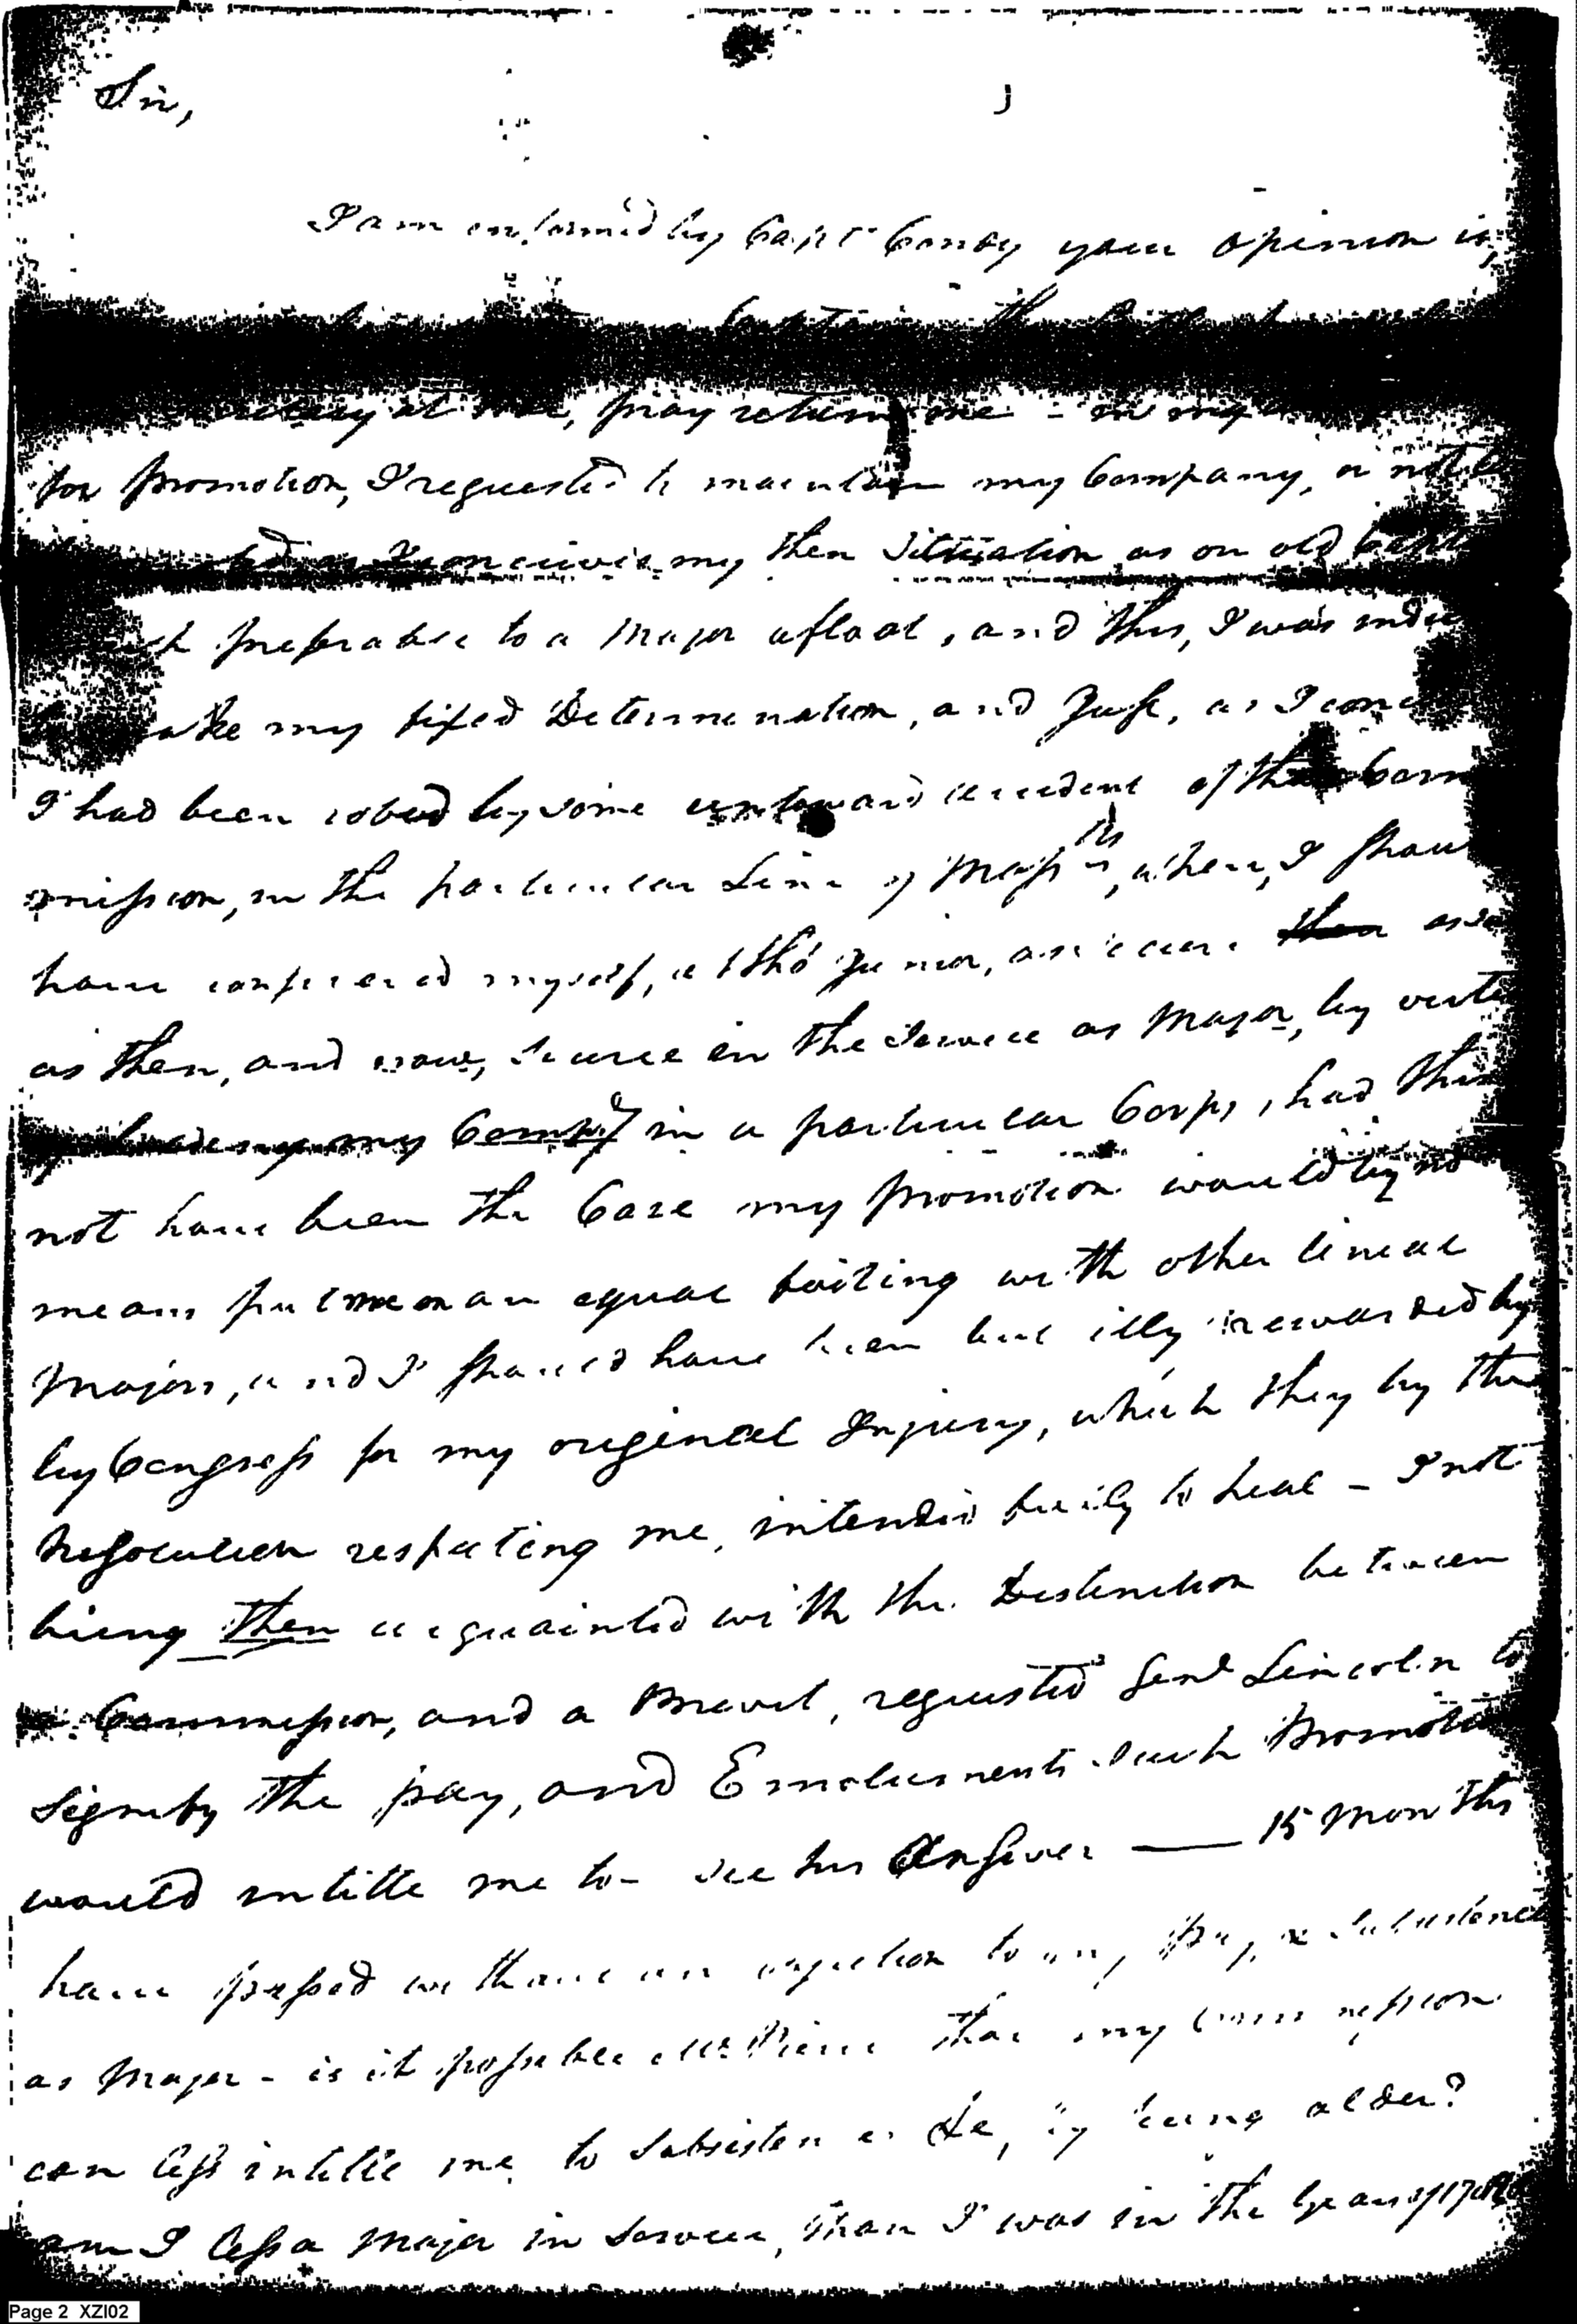 Sir,
I am inform'd by Capt Candy your opinion is,
the
at War, pray return me - in my
for promotion, I requested to maintain my Company, or not
my then Situation as an old Capt
preferable to a Major afloat, and this, I was
my fixed Determination, and Just, as I
I had been robed by some untoward accident of the Com
mission, in the particular Line of Massts, where, I shou
have conspired myself, altho' Junior, as secure as
as then, and now, secure in the Service as Major, by
my Compy in a particular Corps, had this
not have been the Case my promotion would by no
means put me on an equal footing with other lineal
Majors, and I should have been but illy rewarded by
by Congress for my original Injury, which they by the
Resolution respecting me, intended fully to heal - I not
being then acquainted with the Distinction between
Commission, and a Brevet, requested Genl Lincoln to
signify the pay, and Emoluments such Promotion
would intitle me to - see his Answer — 15 Months
have passed without an objection to my Pay, & Subsistence
as Major - is it possible Mr Pierce that my Commission
can less intitle me to Subsistence &c, by being older?
am I less a Major in Service, than I was in the Year of
Page 2 XZI02